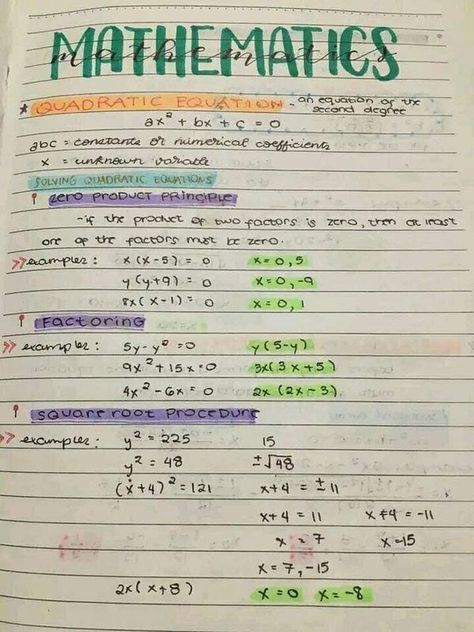 MATHEMATICS
mathematics
* QUADRATIC EQUATION - an equation of the second degree
ax² + bx + c = 0
abc = constants or numerical coefficients
x = unknown variable
SOLVING QUADRATIC EQUATIONS
ZERO PRODUCT PRINCIPLE
- if the product of two factors is zero, then at least
one of the factors must be zero.
>> examples: x(x-5) = 0 x = 0, 5
y(y+9) = 0 x = 0, -9
8x(x-1) = 0 x = 0, 1
FACTORING
>> examples: 5y - y² = 0 y(5-y)
9x² + 15x = 0 3x(3x+5)
4x² - 6x = 0 2x(2x-3)
SQUARE ROOT PROCEDURE
>> examples: y² = 225 15
y² = 48 ±√48
(x+4)² = 121 x+4 = ±11
x+4 = 11 x+4 = -11
x = 7 x=-15
x = 7, -15
2x(x+8) x = 0 x = -8